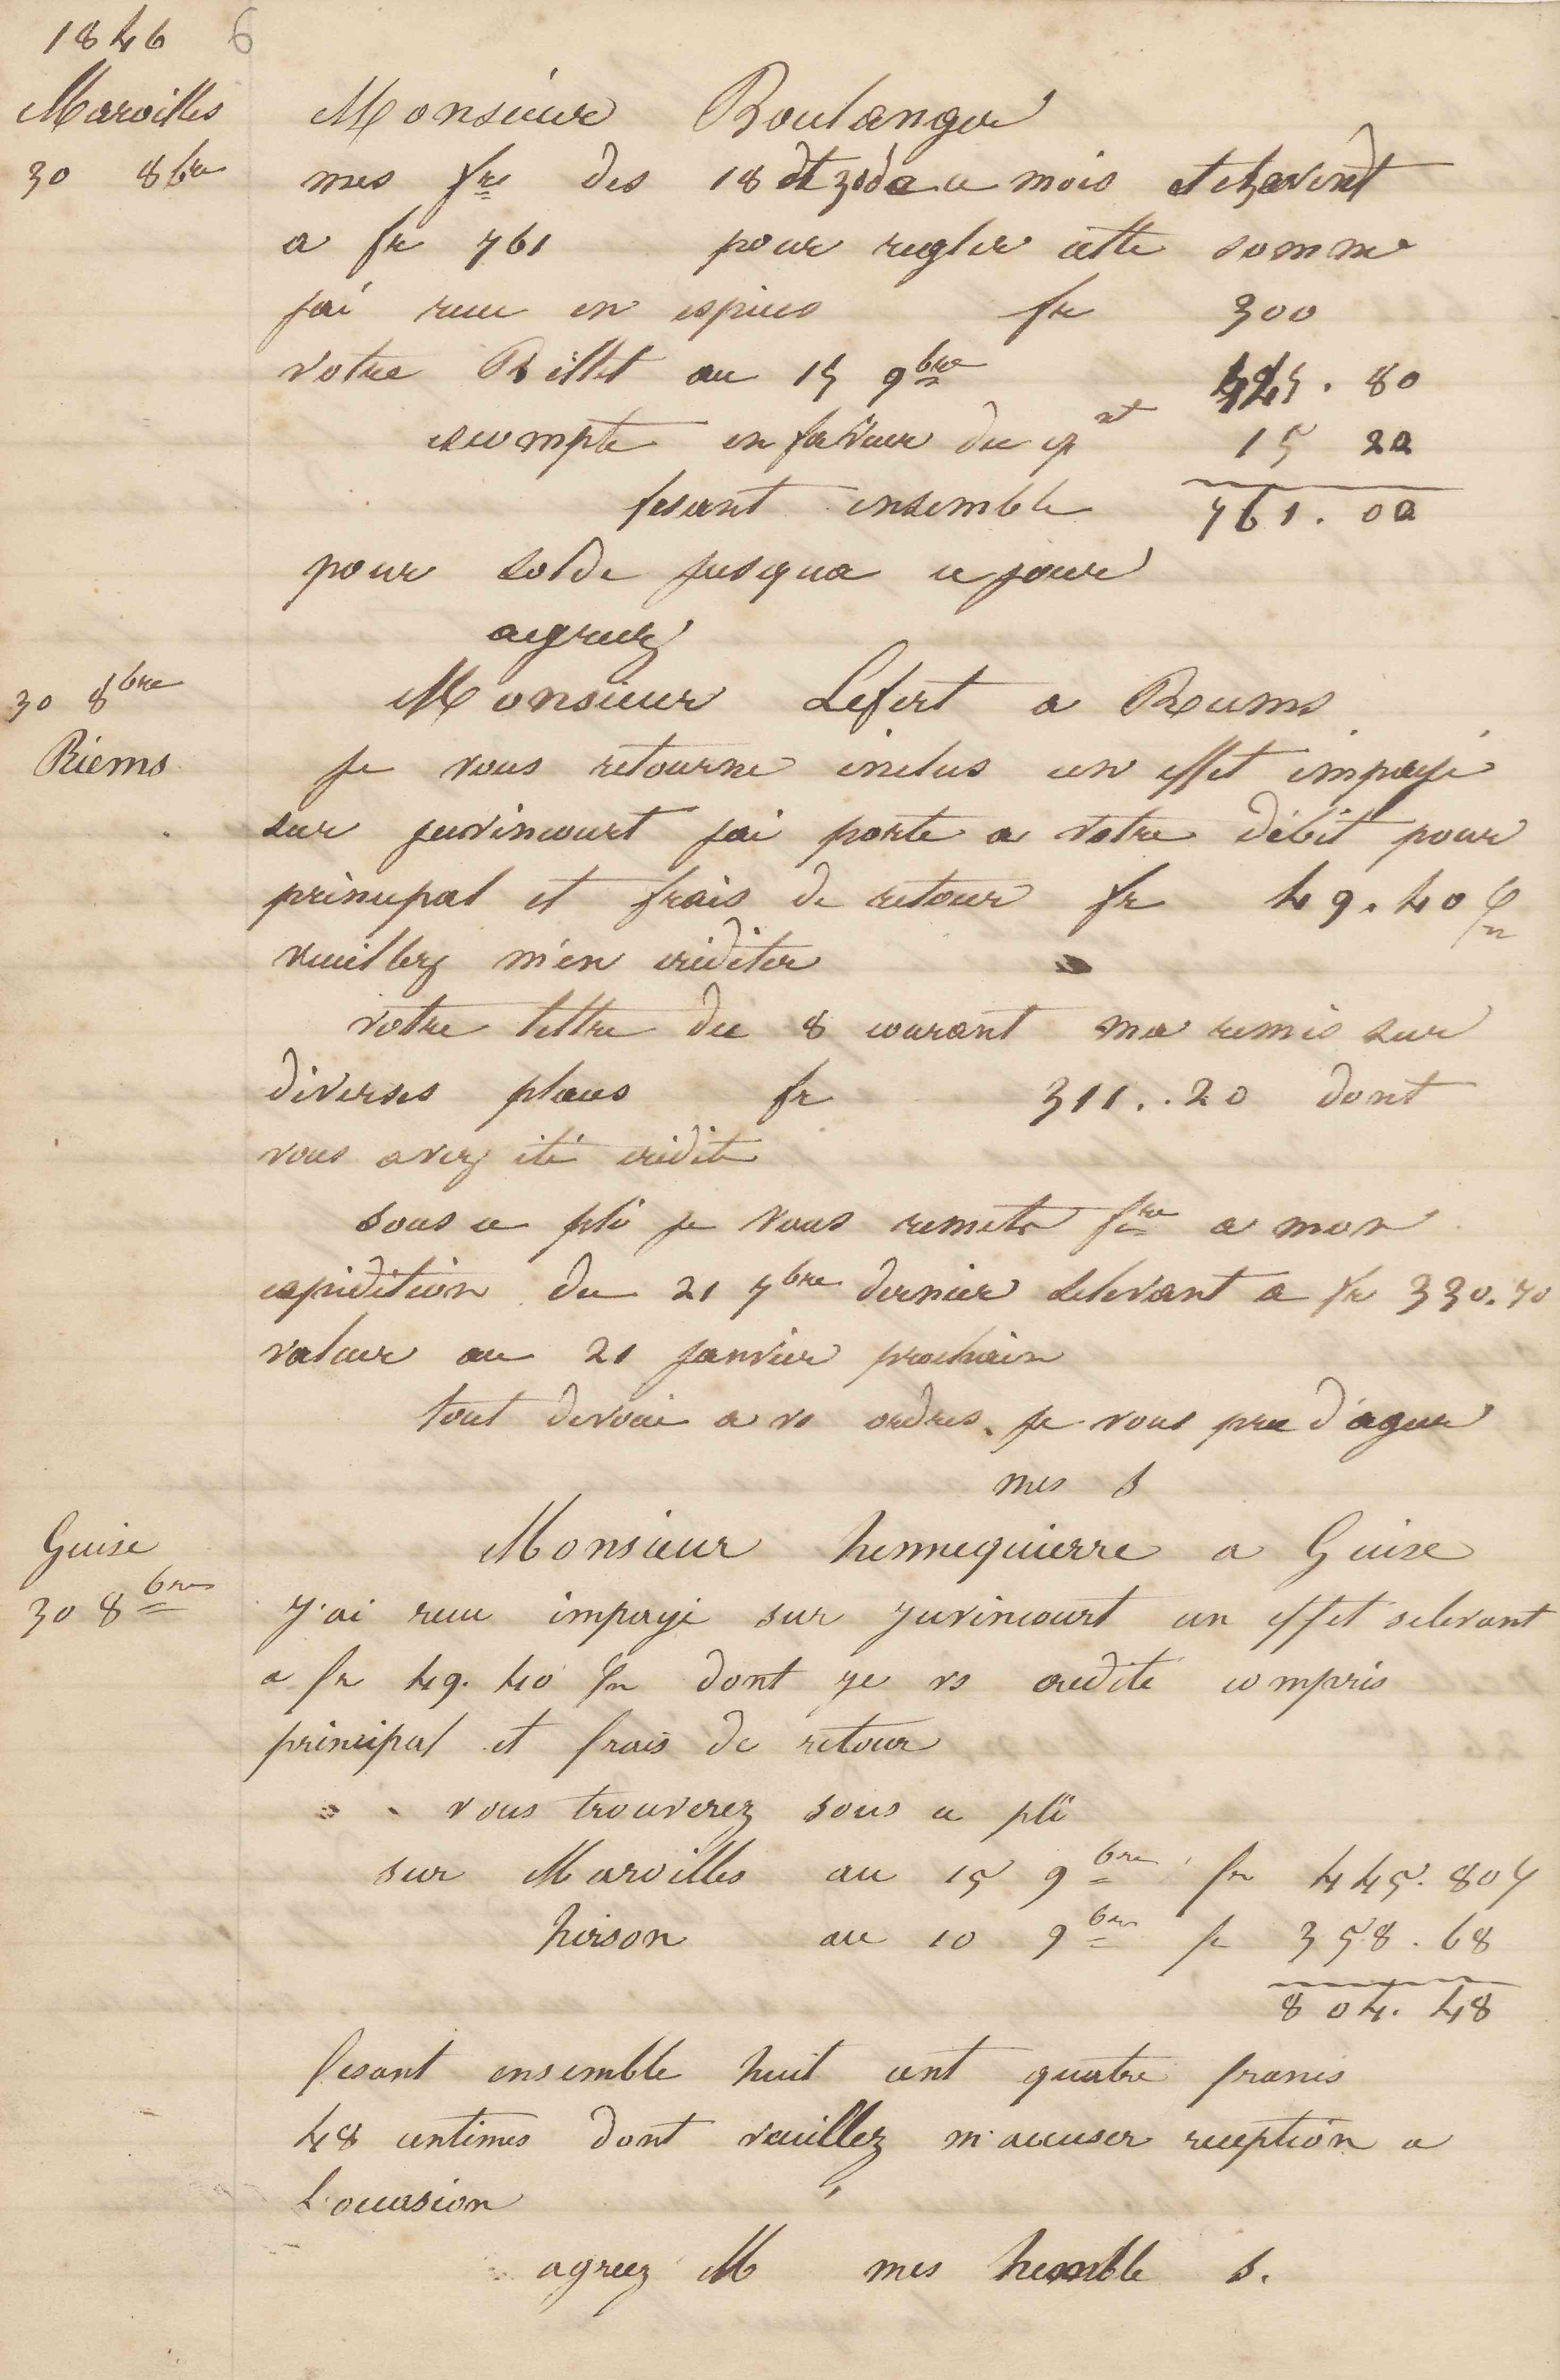 1846 6
Maroilles Monsieur Boulanger
30 8bre mes fres des 18 et 30 de ce mois
a fr 761 pour regler cette somme
jai recu en especes fr 300
votre Billet au 15 9bre 445. 80
escompte en faveur du pnt 15 20
fesant ensemble 761. 00
pour solde jusqua ce jour
agreez
30 8bre Monsieur Lefert a Reims
Riems je vous retourne inclus un effet impayé
sur juvincourt jai porte a votre débit pour
principal et frais de retour fr 49. 40
veuillez m'en créditer
votre lettre du 8 courant ma remis sur
diverses places fr 311.. 20 dont
vous avez été crédité
sous ce pli je vous remets fre a mon
expédition du 21 7bre dernier selevant a fr 330. 70
valeur au 21 janvier prochain
tout devoué a vs ordres. je vous prie d'agreer
mes s
Guise Monsieur hennequierre a Guise
30 8bre J'ai recu impayé sur juvincourt un effet selevant
a fr 49. 40 dont je vs credite compris
principal et frais de retour
vous trouverez sous ce pli
sur Maroilles au 15 9bre fr 445. 80
hirson au 10 9bre fr 358. 68
804. 48
fesant ensemble huit cent quatre francs
48 centimes dont veuillez m'accuser reception a
L'occasion
agreez M mes humble s.